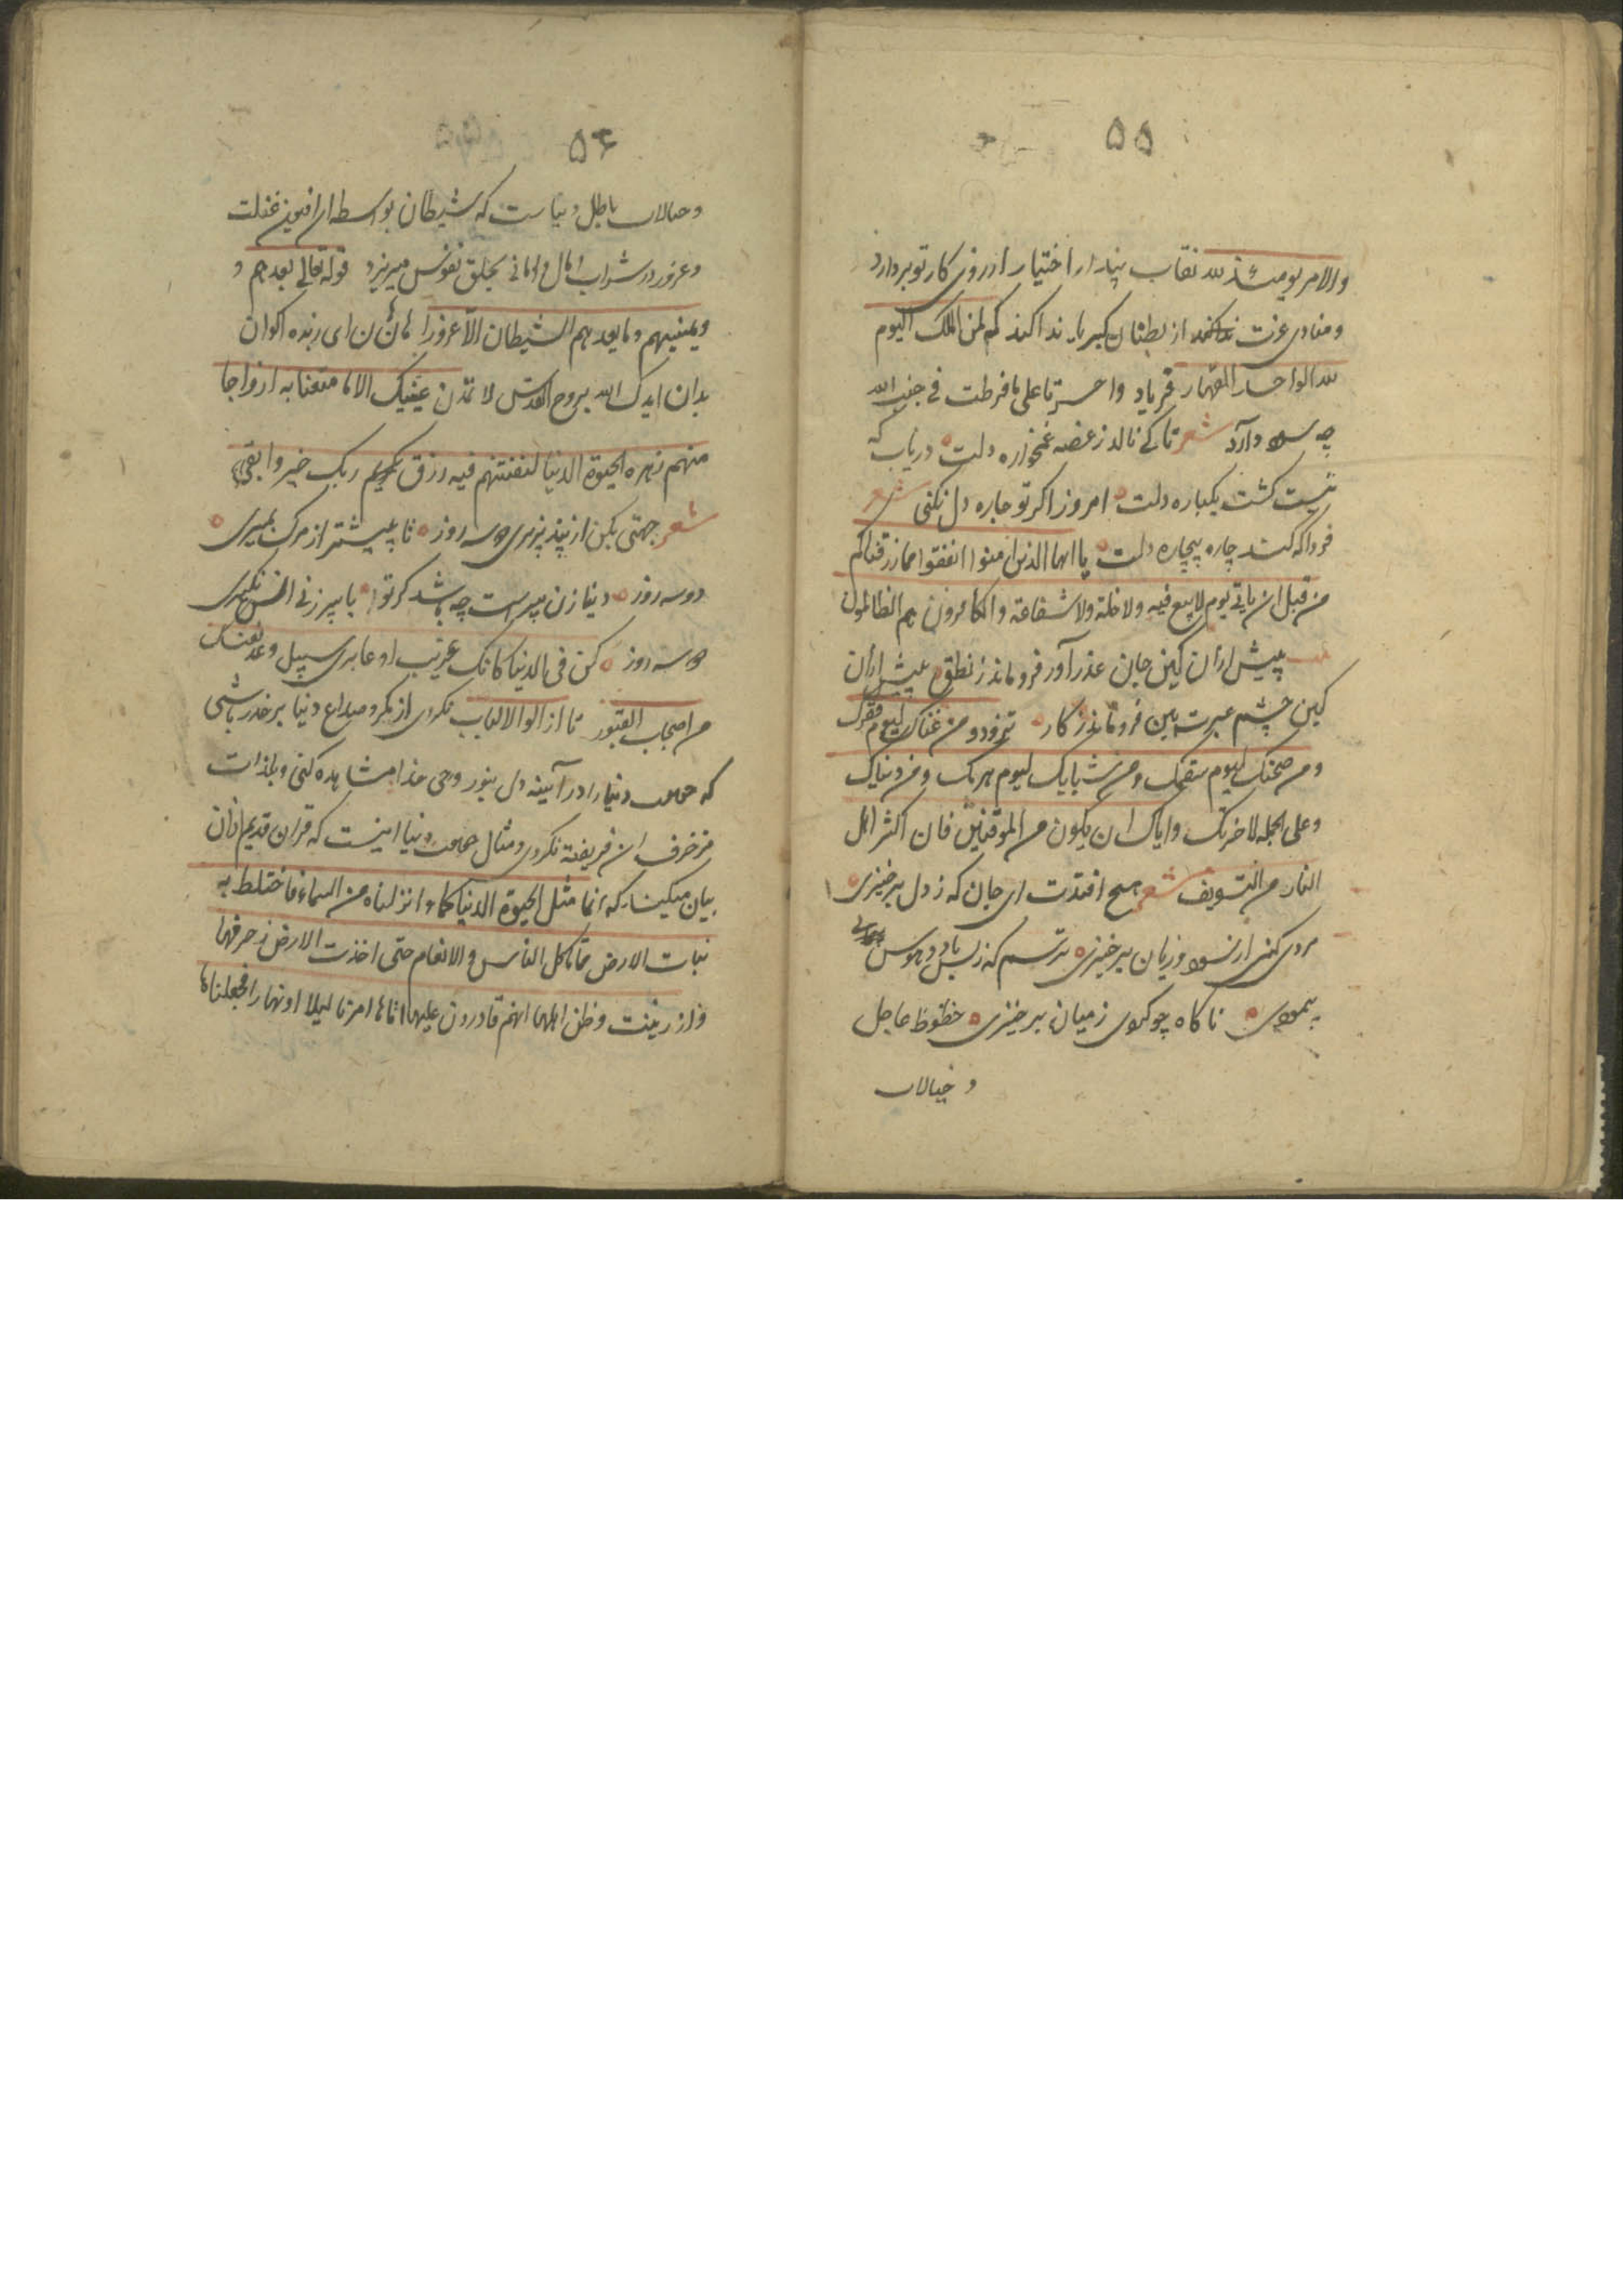 ۵۵
والامر یومئذ لله نقاب پندار اختیار از روی کار تو بردارد
ومنادی عزت از بطنان کبریا ندا کند که لمن الملک الیوم
لله الواحد القهار فریاد واحسرتا علی مافرطت فی جنب الله
چه سود دارد شعر تا کی نالد ز غصه غمخواره دلت دریاب که
نیست گشت یکباره دلت امروز اگر تو چاره دل نکنی شعر
فردا که کند چاره بیچاره دلت یا ایها الذین امنوا انفقوا مما رزقناکم
من قبل ان یاتی یوم لابیع فیه ولا خلة ولا شفاعة والکافرون هم الظالمون
پیش ازان کین جان عذر آور فرو ماند ز نطق پیش ازان
کین چشم عبرت بین فرو ماند ز کار تزود من غناک لیوم فقرک
ومن صحتک لیوم سقمک ومن شبابک لیوم هرمک ومن دنیاک
وعلی الجمله لاخرتک وایاک ان یکون من الموقنین فان اکثر اهل
النار من التسویف شعر هیچ افتدت ای جان که ز دل برخیزی
مردی کنی از سود وزیان برخیزی ترسم که ز بس باد وهوس
پیمودی ناگاه چو گوی ز میان برخیزی حظوظ عاجل
و خیالات
۵۶
وخیالات باطل دنیاست که شیطان بواسطه ان افیون غفلت
وغرور در شراب امال و امانی بحلق نفوس میریزد قوله تعالی یعدهم و
ویمنیهم وما یعدهم الشیطان الا غرورا هان هان ای زبده اکوان
بدان ایدک الله بروح القدس لا تمدن عینیک الی ما متعنا به ازواجا
منهم زهرة الحیوة الدنیا لنفتنهم فیه ورزق ربک خیر وابقی
شعر جهتی بکن از پند پذیری دو سه روز تا پیشتر از مرگ بمیری
دو سه روز دنیا زن پیرست چه باشد گر تو با پیر زنی انس نگیری
دو سه روز کن فی الدنیا کانک غریب او عابری سبیل وعد نفسک
من اصحاب القبور تا از الوا الالباب نگردی از مکر وخداع دنیا بر حذر باشی
که دنیا را در آیینه دل بنور وحی خدا مشاهده کنی وبلذات
مزخرف ان فریفته نگردی ومثال دنیا اینست که قران قدیم ازان
بیان میکند که انما مثل الحیوة الدنیا کماء انزلناه من السماء فاختلط به
نبات الارض مما یاکل الناس والانعام حتی اخذت الارض زخرفها
وازینت وظن اهلها انهم قادرون علیها اتاها امرنا لیلا او نهارا فجعلناها